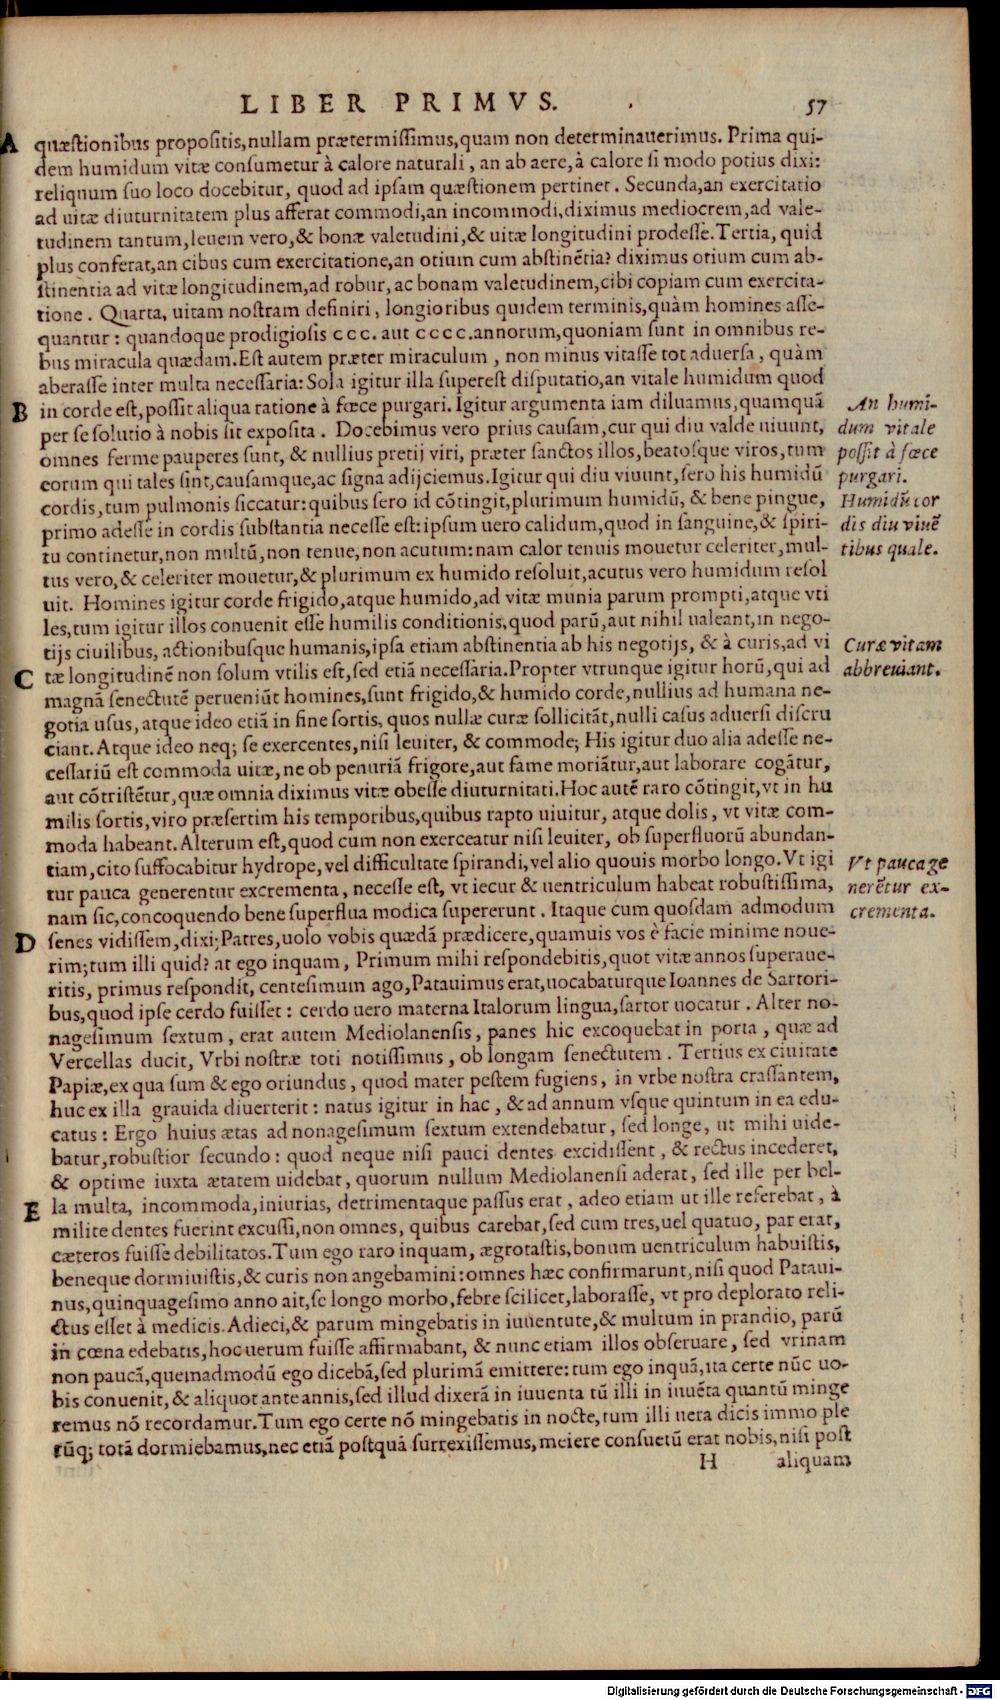 LIBER PRIMVS. 57
A quæstionibus propositis, nullam prætermisimus, quam non determinauerimus. Prima qui-
dem humidum vitæ consumetur à calore naturali, an ab aere, à calore si modo potius dixi:
reliqnum suo loco docebitur, quod ad ipsam quæstionem pertinet. Secunda, an exercitatio
ad uitæ diuturnitatem plus afferat commodi, an incommodi, diximus mediocrem, ad vale-
tudinem tantum, leuem vero, & bonæ valetudini, & uitæ longitudini prodesse. Tertia, quid
plus conferat, an cibus cum exercitatione, an otium cum abstinẽtia? diximus otium cum ab-
stinentia ad vitæ longitudinem, ad robur, ac bonam valetudinem, cibi copiam cum exercita-
tione. Quarta, uitam nostram definiri, longioribus quidem terminis, quàm homines asse-
quantur: quandoque prodigiosis ccc. aut cccc. annorum, quoniam sunt in omnibus re-
bus miracula quædam. Est autem præter miraculum, non minus vitasse tot aduersa, quàm
aberasse inter multa necessaria: Sola igitur illa superest disputatio, an vitale humidum quod
B in corde est, possit aliqua ratione à fœce purgari. Igitur argumenta iam diluamus, quamquã
An humi-
per se solutio à nobis sit exposita. Docebimus vero prius causam, cur qui diu valde uiuunt,
dum vitale
omnes ferme pauperes sunt, & nullius pretij viri, præter sanctos illos, beatosque viros, tum
possit à fœce
eorum qui tales sint, causamque, ac signa adijciemus. Igitur qui diu viuunt, sero his humidũ
purgari.
cordis, tum pulmonis siccatur: quibus sero id cõtingit, plurimum humidũ, & bene pingue,
Humidũ cor
primo adesse in cordis substantia necesse est: ipsum uero calidum, quod in sanguine, & spiri-
dis diu viuẽ
tu continetur, non multũ, non tenue, non acutum: nam calor tenuis mouetur celeriter, mul-
tibus quale.
tus vero, & celeriter mouetur, & plurimum ex humido resoluit, acutus vero humidum resol
uit. Homines igitur corde frigido, atque humido, ad vitæ munia parum prompti, atque vti
les, tum igitur illos conuenit esse humilis conditionis, quod parũ, aut nihil ualeant, in nego-
tijs ciuilibus, actionibusque humanis, ipsa etiam abstinentia ab his negotijs, & à curis, ad vi
Curæ vitam
C tæ longitudinẽ non solum vtilis est, sed etiã necessaria. Propter vtrunque igitur horũ, qui ad
abbreuiant.
magnã senectutẽ perueniũt homines, sunt frigido, & humido corde, nullius ad humana ne-
gotia usus, atque ideo etiã in fine sortis, quos nullæ curæ sollicitãt, nulli casus aduersi discru
ciant. Atque ideo neq; se exercentes, nisi leuiter, & commode; His igitur duo alia adesse ne-
cessariũ est commoda uitæ, ne ob penuriã frigore, aut fame moriãtur, aut laborare cogãtur,
aut cõtristẽtur, quæ omnia diximus vitæ obesse diuturnitati. Hoc autẽ raro cõtingit, vt in hu
milis sortis, viro præsertim his temporibus, quibus rapto uiuitur, atque dolis, vt vitæ com-
moda habeant. Alterum est, quod cum non exerceatur nisi leuiter, ob superfluorũ abundan-
tiam, cito suffocabitur hydrope, vel difficultate spirandi, vel alio quouis morbo longo. Vt igi
Vt pauca ge
tur pauca generentur excrementa, necesse est, vt iecur & uentriculum habeat robustissima,
nerẽtur ex-
nam sic, concoquendo bene superflua modica supererunt. Itaque cum quosdam admodum
crementa.
D senes vidissem, dixi; Patres, uolo vobis quædã prædicere, quamuis vos è facie minime noue-
rim; tum illi quid? at ego inquam, Primum mihi respondebitis, quot vitæ annos superaue-
ritis, primus respondit, centesimum ago, Patauimus erat, uocabaturque Ioannes de Sartori-
bus, quod ipse cerdo fuisset: cerdo uero materna Italorum lingua, sartor uocatur. Alter no-
nagesimum sextum, erat autem Mediolanensis, panes hic excoquebat in porta, quæ ad
Vercellas ducit, Vrbi nostræ toti notissimus, ob longam senectutem. Tertius ex ciuitate
Papiæ, ex qua sum & ego oriundus, quod mater pestem fugiens, in vrbe nostra crassantem,
huc ex illa grauida diuerterit: natus igitur in hac, & ad annum vsque quintum in ea edu-
catus: Ergo huius ætas ad nonagesimum sextum extendebatur, sed longe, ut mihi uide-
batur, robustior secundo: quod neque nisi pauci dentes excidissent, & rectus incederet,
& optime iuxta ætatem uidebat, quorum nullum Mediolanensi aderat, sed ille per bel-
E la multa, incommoda, iniurias, detrimentaque passus erat, adeo etiam ut ille referebat, à
milite dentes fuerint excussi, non omnes, quibus carebat, sed cum tres, uel quatuo, par erat,
cæteros fuisse debilitatos. Tum ego raro inquam, ægrotastis, bonum uentriculum habuistis,
beneque dormiuistis, & curis non angebamini: omnes hæc confirmarunt, nisi quod Pataui-
nus, quinquagesimo anno ait, se longo morbo, febre scilicet, laborasse, vt pro deplorato reli-
ctus esset à medicis. Adieci, & parum mingebatis in iuuentute, & multum in prandio, parũ
in cœna edebatis, hoc uerum fuisse affirmabant, & nunc etiam illos obseruare, sed vrinam
non paucã, quemadmodũ ego dicebã, sed plurimã emittere: tum ego inquã, ita certe nũc uo-
bis conuenit, & aliquot ante annis, sed illud dixerã in iuuenta tũ illi in iuuẽta quantũ minge
remus nõ recordamur. Tum ego certe nõ mingebatis in nocte, tum illi uera dicis immo ple
rũq; totã dormiebamus, nec etiã postquã surrexissemus, meiere consuetũ erat nobis, nisi post
H aliquam
Digitalisierung gefördert durch die Deutsche Forschungsgemeinschaft - DFG